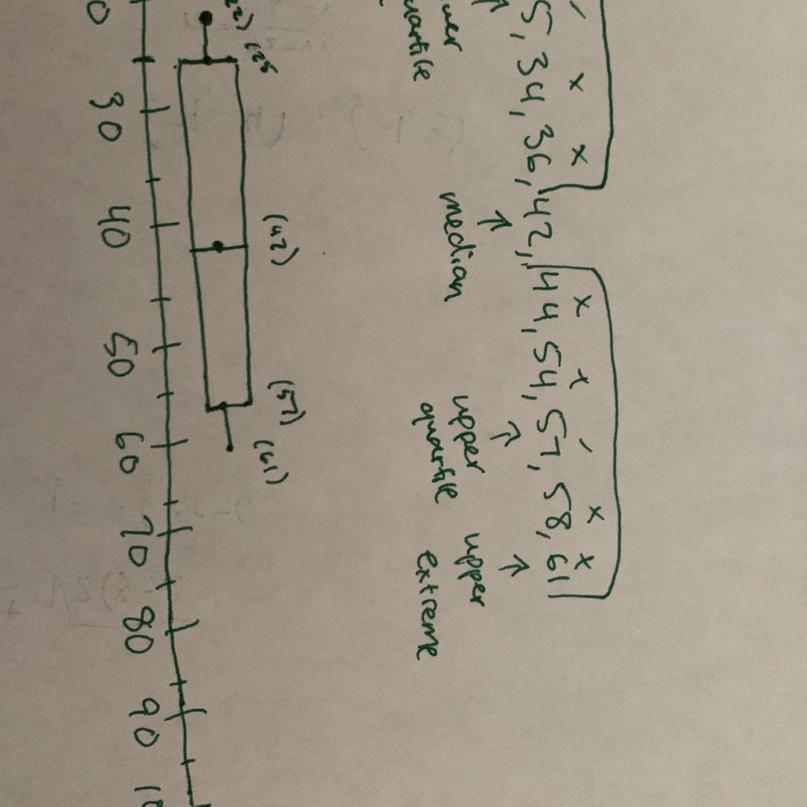 5, 34, 36, 42, 44, 54, 57, 58, 61
median
upper quartile
upper extreme
quartile
(42)
(57)
(61)
30 40 50 60 70 80 90